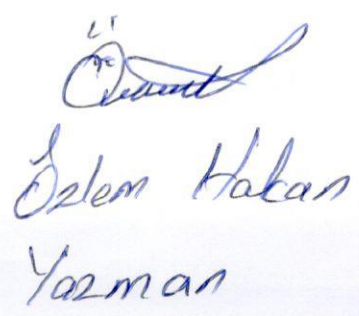 Özlem Hakan
Yazman